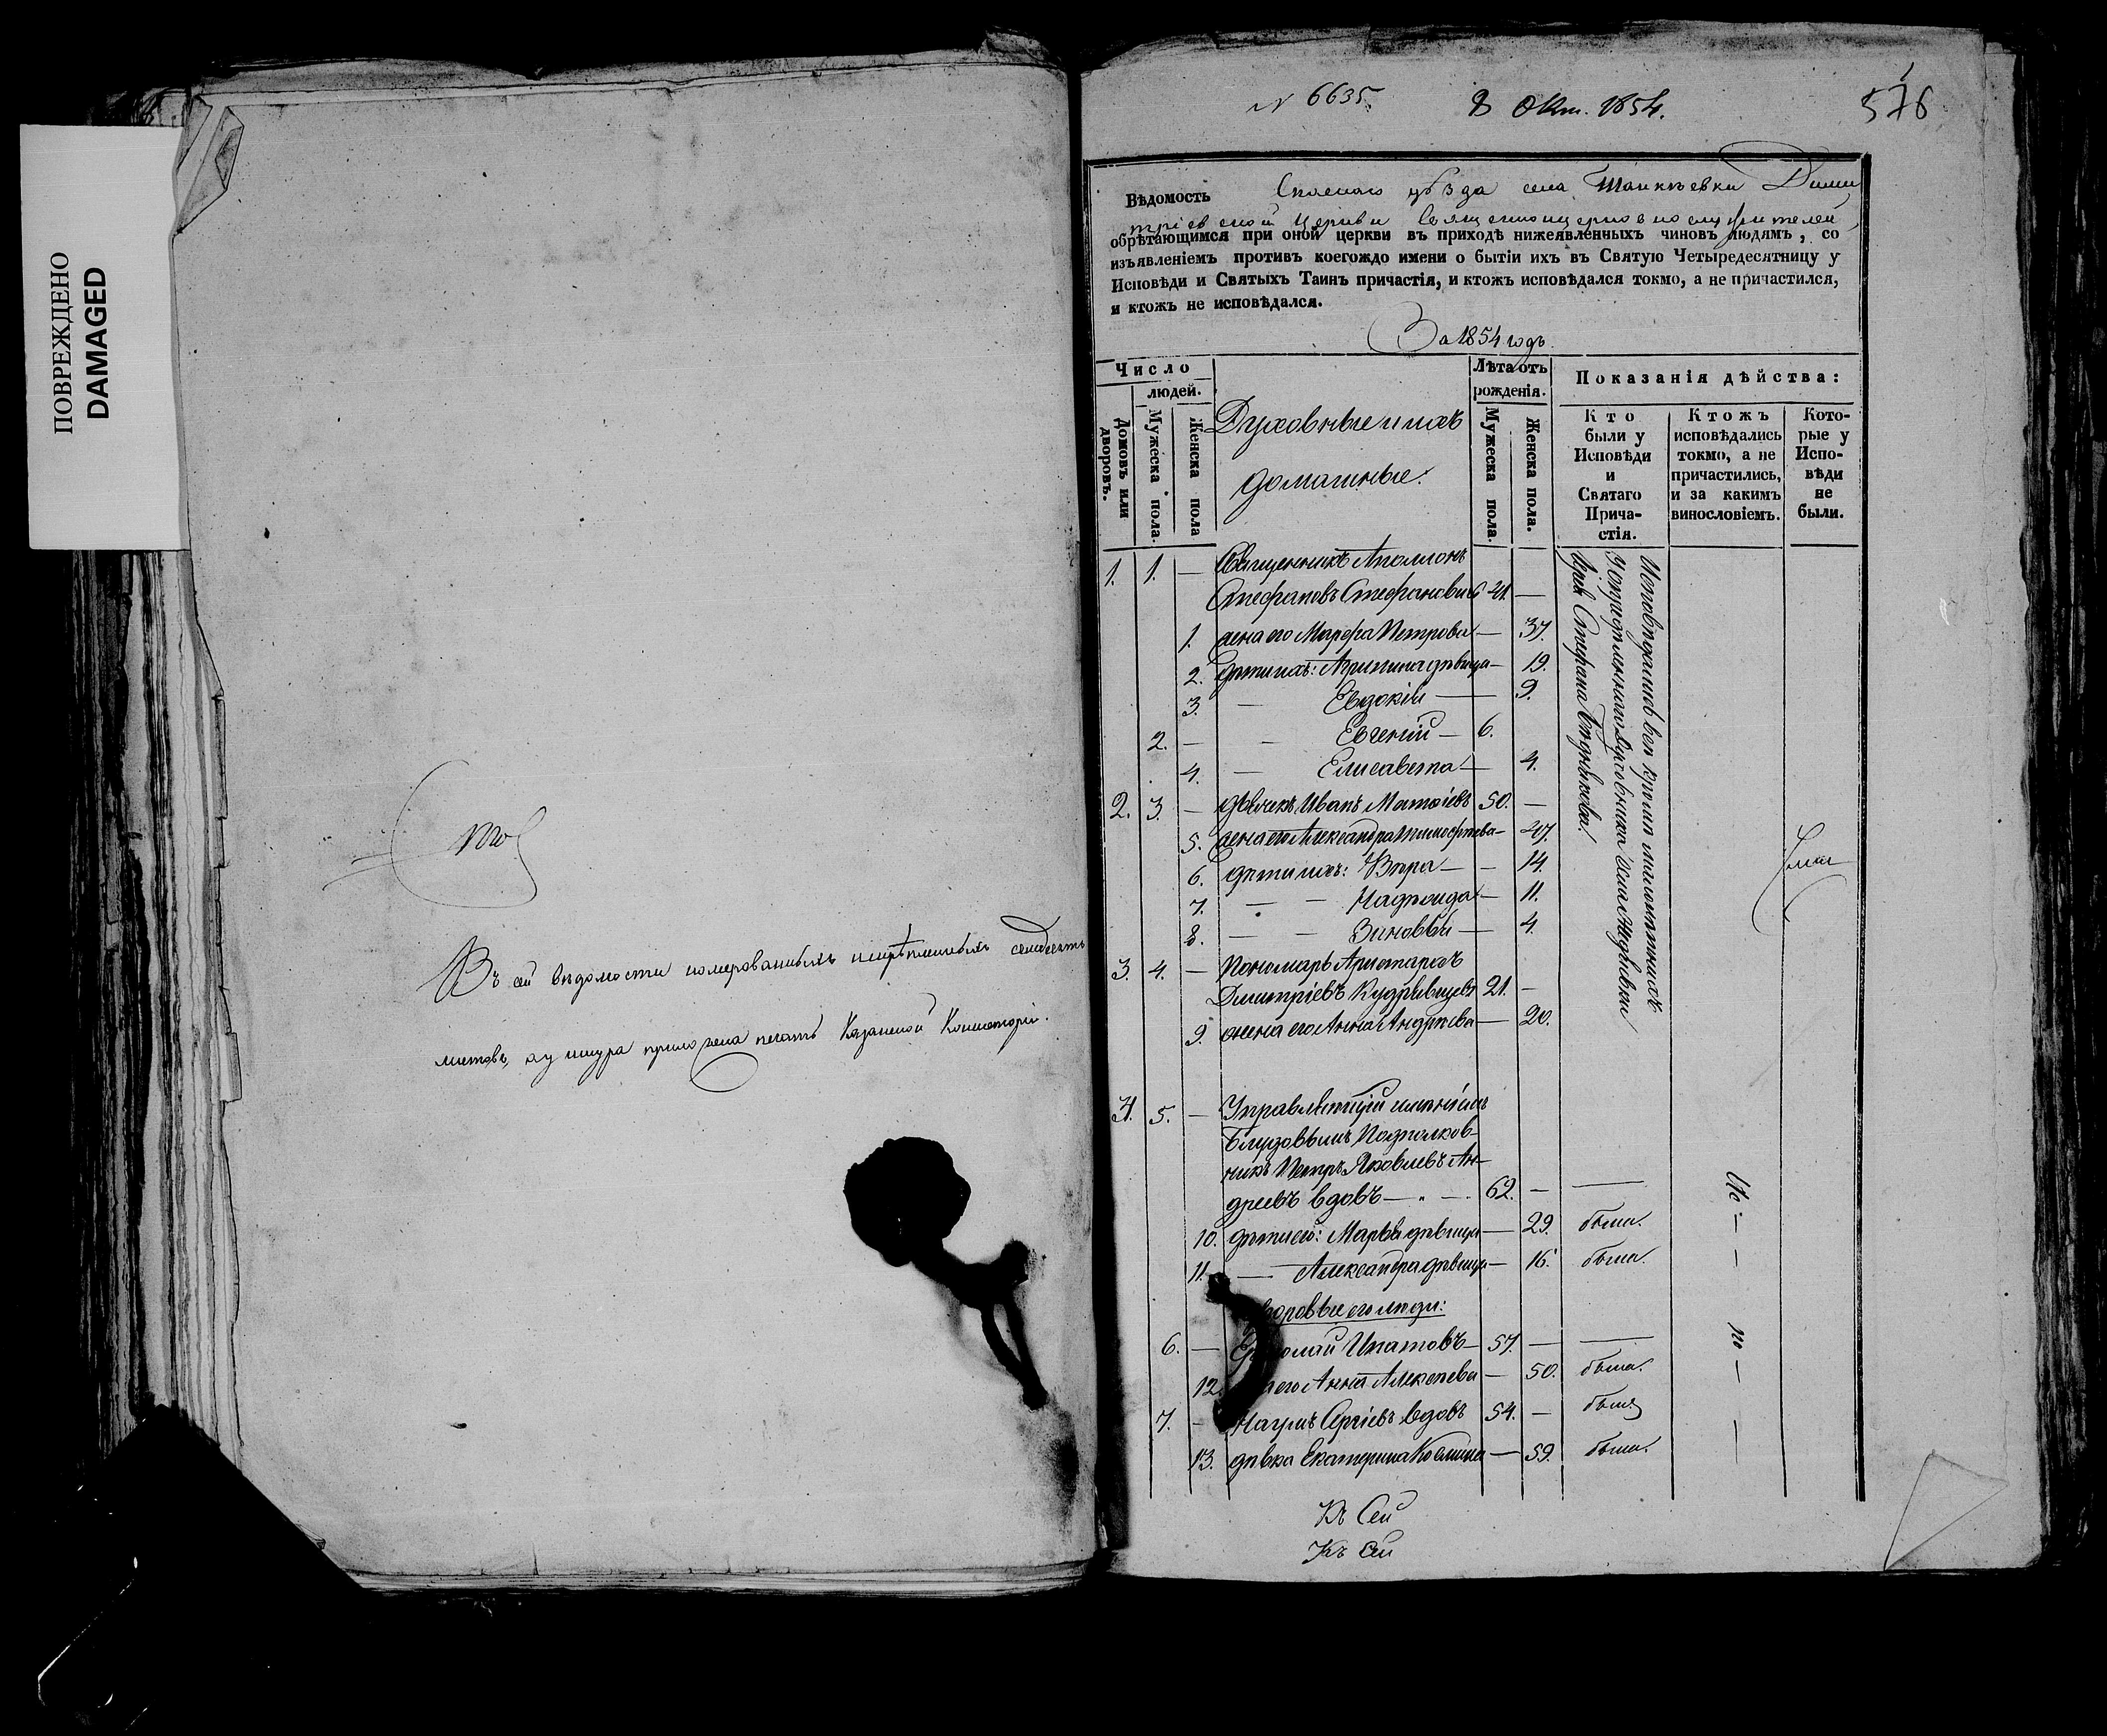 ПОВРЕЖДЕНО
DAMAGED
Въ сей вѣдомости номерованныхъ листовъ, а у шнура приложена печать Казанской Консисторіи.
N 6635.
8 Окт. 1854.
576
Вѣдомость Спаскаго уѣзда села Дими
тріевской Церкви Священноцерковнослужителей
обрѣтающимся при оной церкви въ приходѣ нижеявленныхъ чиновъ людямъ, со
изъявленіемъ противъ коегождо имени о бытіи ихъ въ Святую Четыредесятницу у
Исповѣди и Святыхъ Таинъ причастія, и ктожъ исповѣдался токмо, а не причастился,
и ктожъ не исповѣдался.
За 1854 годъ.
Число
людей.
Домовъ или дворовъ.
Мужеска пола.
Женска пола
Духовные и ихъ
домашные:
Лѣта отъ
рожденія.
Мужеска пола.
Женска пола.
Показанія дѣйства:
Кто
были у
Исповѣди
и
Святаго
Прича-
стія.
Ктожъ
исповѣдались
токмо, а не
причастились,
и за какимъ
винословіемъ.
Кото-
рые у
Испо-
вѣди
не
были.
1. 1. — Священникъ Аполлонъ
Стефановъ Стефановъ 41. —
1. жена его Марфа Петрова — 37.
2. дѣти ихъ: Агрипина дѣвица — 19.
3. — Евдокія — 9.
2. — — Евгеній — 6.
4. — Елисавета — 4.
2. 3. — дьячекъ Иванъ Матѳіевъ 50. —
5. жена его Александра Тимофѣева — 47.
6. дѣти ихъ: Вѣра — — 14.
7. — — Надежда — 11.
8. — — Зиновія — 4.
3. 4. — Пономарь Аристархъ
Дмитріевъ Кудрявцевъ 21. —
9. жена его Анна Андреева — 20.
Исповѣдались всѣ кромѣ малолѣтнихъ
У опредѣленнаго духовника
Стефана
4. 5. — Управляющій имѣніемъ
Блудовымъ Подполков-
никъ Петръ Яковлевъ Ан-
дреевъ вдовъ — 62. — —
10. дѣти его: Марья дѣвица — 29. была.
11. — Александра дѣвица — 16. была.
дворовые его люди:
6. — Ипатовъ — 57. — —
12. его Анна Алексѣева — 50. была.
7. — Наумъ Сергіевъ вдовъ 54. — былъ
13. дѣвка Екатерина — 59. была.
Къ Сей
Къ сей